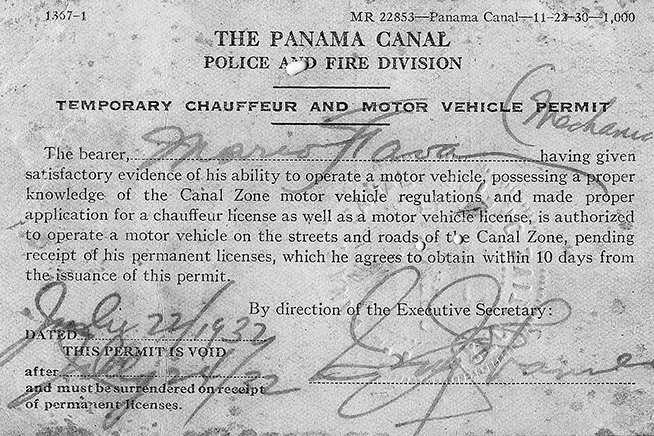 1367-1 MR 22853—Panama Canal—11-22-30—1,000
THE PANAMA CANAL
POLICE AND FIRE DIVISION
TEMPORARY CHAUFFEUR AND MOTOR VEHICLE PERMIT
(Mechanic
The bearer, Mario having given
satisfactory evidence of his ability to operate a motor vehicle, possessing a proper
knowledge of the Canal Zone motor vehicle regulations and made proper
application for a chauffeur license as well as a motor vehicle license, is authorized
to operate a motor vehicle on the streets and roads of the Canal Zone, pending
receipt of his permanent licenses, which he agrees to obtain within 10 days from
the issuance of this permit.
By direction of the Executive Secretary:
DATED July 22/1932
THIS PERMIT IS VOID
after
and must be surrendered on receipt
of permanent licenses.